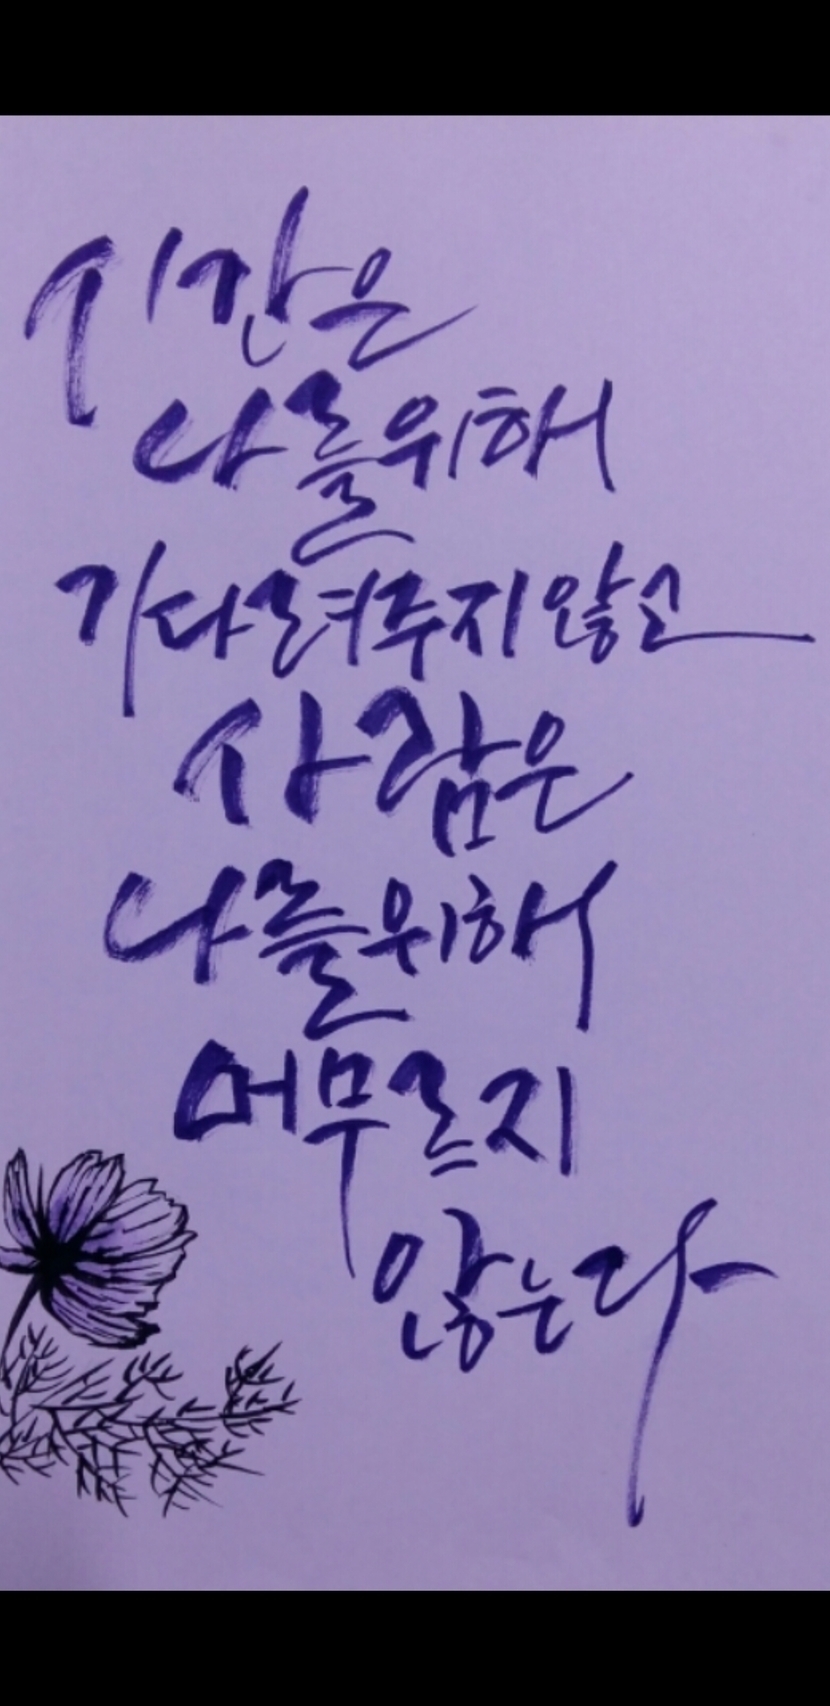 시간은
나를위해
기다려주지않고
사람은
나를위해
머무르지
않는다